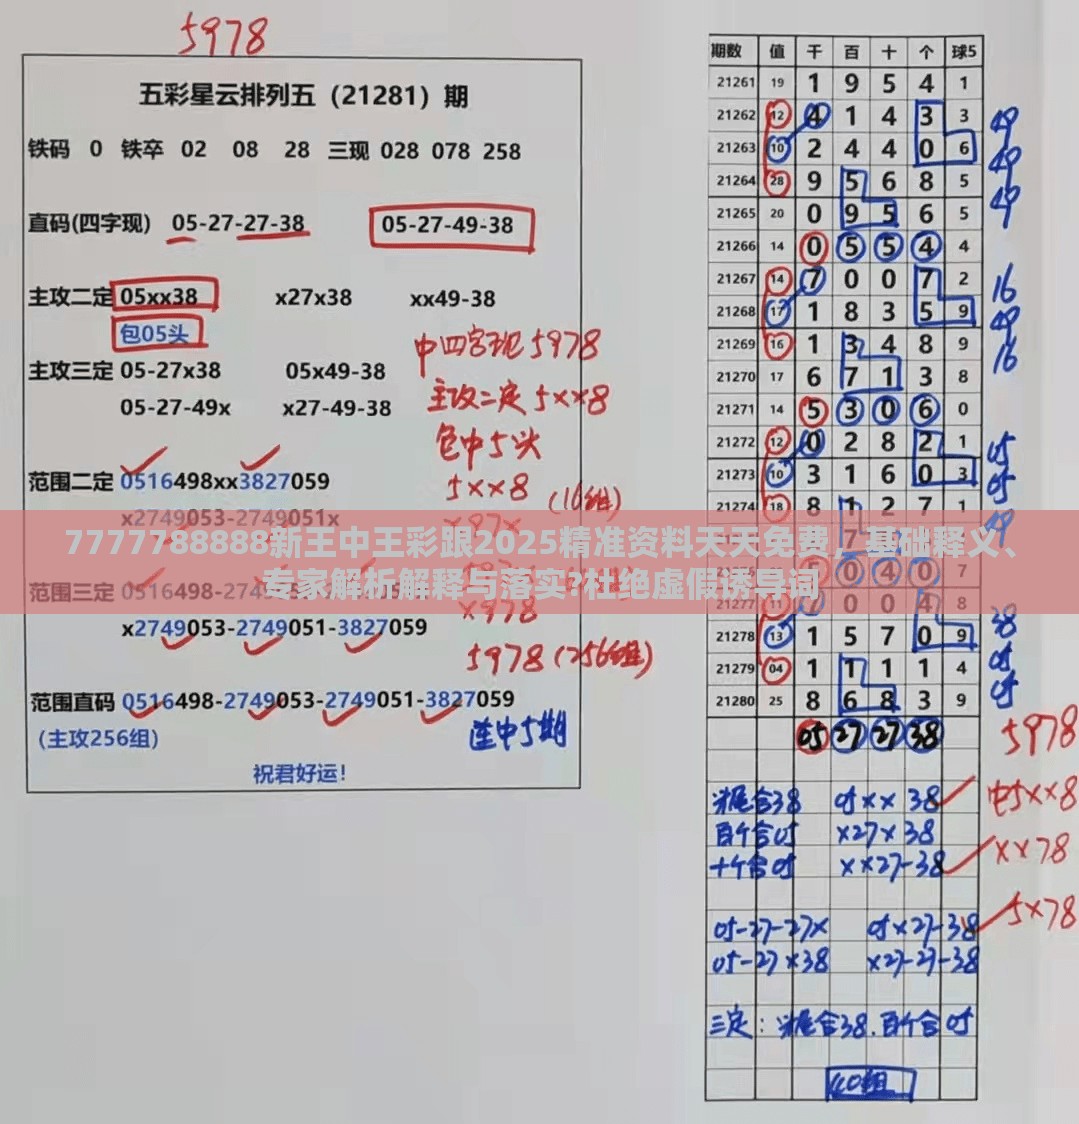 5978
五彩星云排列五（21281）期
铁码 0 铁卒 02 08 28 三现 028 078 258
直码(四字现) 05-27-27-38 05-27-49-38
主攻二定 05xx38 x27x38 xx49-38
包05头
主攻三定 05-27x38 05x49-38
05-27-49x x27-49-38
范围二定 0516498xx3827059
x2749053-2749051x
范围三定
x2749053-2749051-3827059
范围直码 0516498-2749053-2749051-3827059
(主攻256组)
祝君好运!
中四字现5978
主攻二定5xx8
包中5头
5xx8 (16组)
x97x
x978
5978 (256组)
连中5期
7777788888新王中王彩跟2025精准资料天天免费，基础释义、
专家解析解释与落实?杜绝虚假诱导词
期数 值 千 百 十 个 球5
21261 19 1 9 5 4 1
21262 12 4 1 4 3 3
21263 10 2 4 4 0 6
21264 28 9 5 6 8 5
21265 20 0 9 5 6 5
21266 14 0 5 5 4 4
21267 14 7 0 0 7 2
21268 17 1 8 3 5 9
21269 16 1 3 4 8 9
21270 17 6 7 1 3 8
21271 14 5 3 0 6 0
21272 12 0 2 8 2 1
21273 10 3 1 6 0 3
21274 18 8 1 2 7 1
0 4 0 7
21277 11 0 0 4 8
21278 13 1 5 7 0 9
21279 04 1 1 1 1 4
21280 25 8 6 8 3 9
05 27 27 38
49
49
49
16
49
16
05
05
49
38
05
05
5978
头尾合38 05xx38 中5xx8
百个合05 x27x38
十个合05 xx27-38 xx78
05-27-27x 05x27-38 5x78
05-27x38 x27-27-38
三定：头尾合38.百个合05
40组